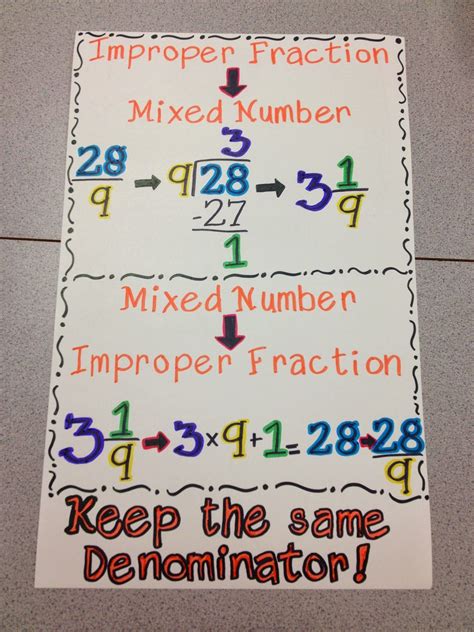 Improper Fraction
↓
Mixed Number
3
28/9 → 9)28 → 3 1/9
-27
1
Mixed Number
↓
Improper Fraction
3 1/9 → 3×9+1=28→28/9
Keep the same
Denominator!